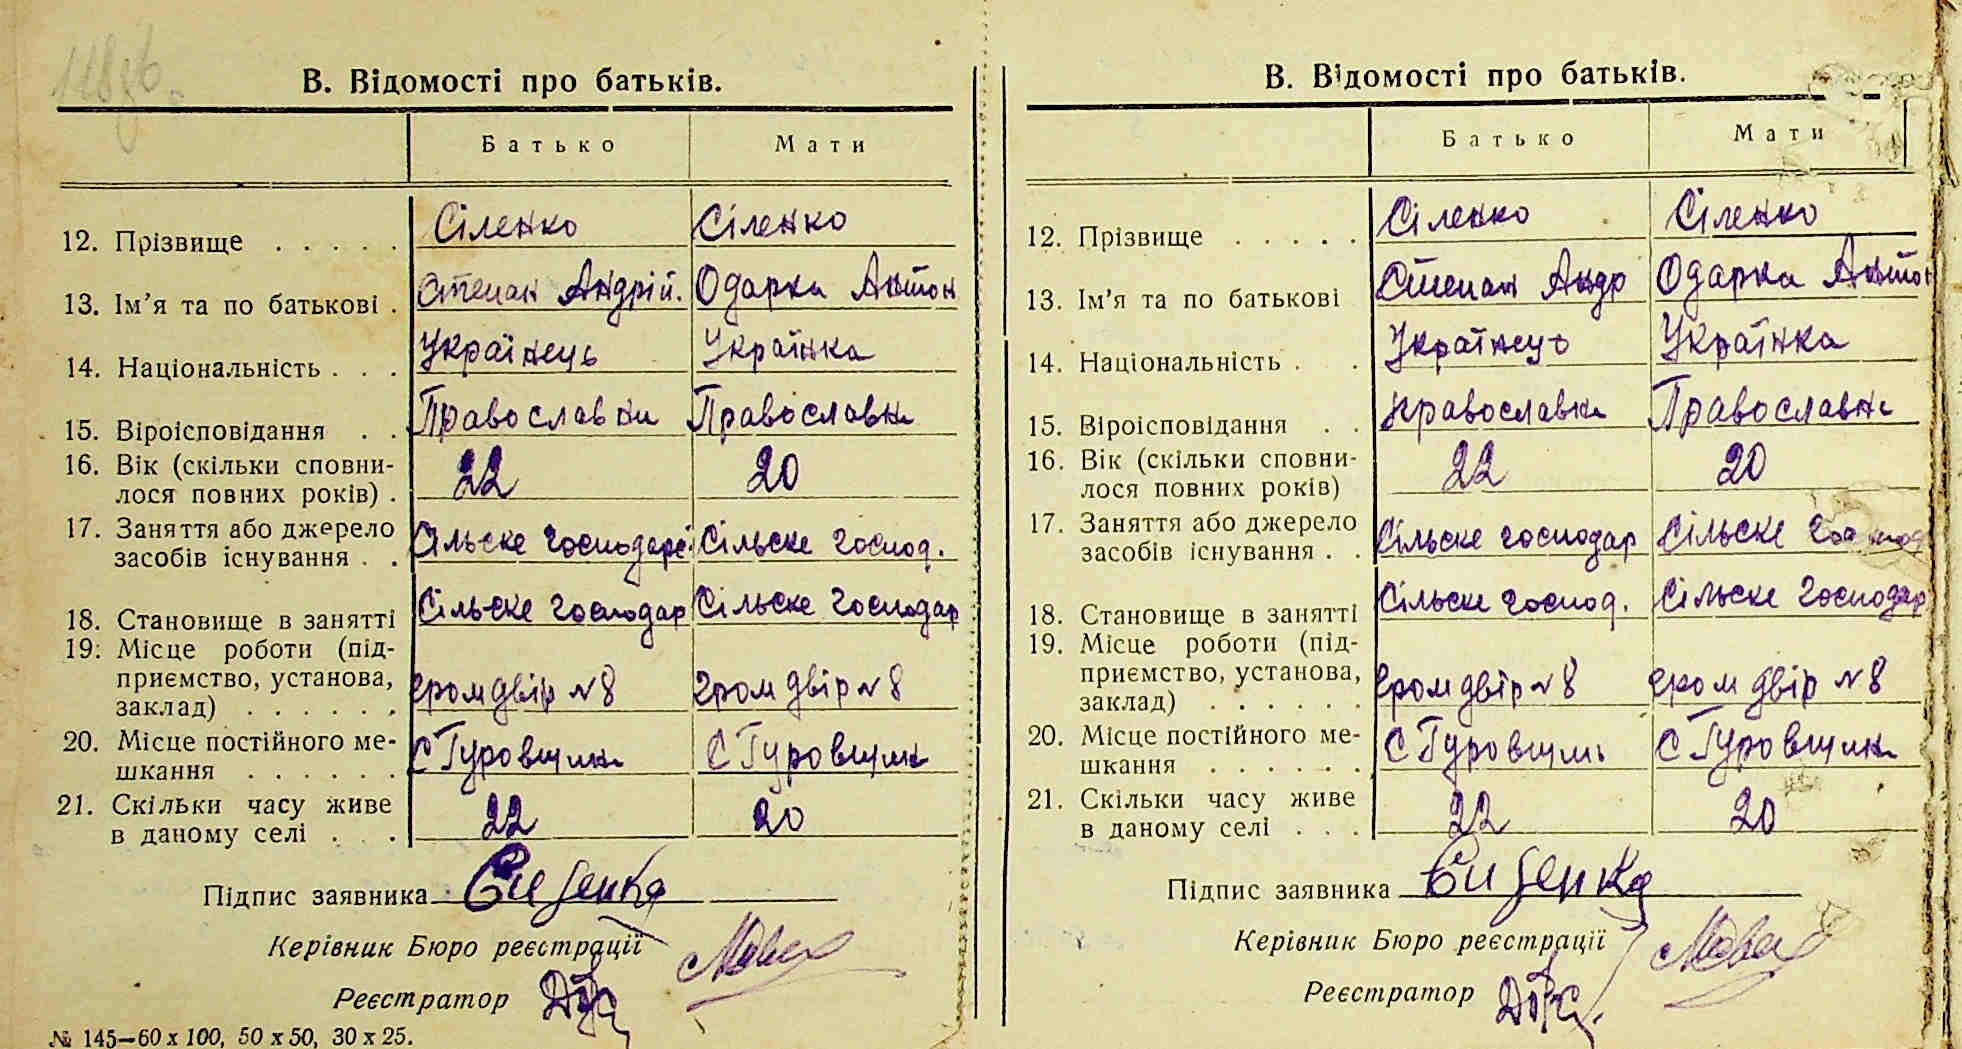 В. Відомості про батьків.
Батько Мати
12. Прізвище . . . . . Сіленко Сіленко
13. Ім'я та по батькові . Степан Андрій. Одарка Антон
14. Національність . . . Українець Українка
15. Віроісповідання . . Православни Православн
16. Вік (скільки сповни-
лося повних років) . 22 20
17. Заняття або джерело
засобів існування . . Сільске господарс Сільске господ.
18. Становище в занятті Сільске господар Сільске господар
19. Місце роботи (під-
приємство, установа,
заклад) . . . . . . громдвір №8 гром двір №8
20. Місце постійного ме-
шкання . . . . . . С Гуровщин С Гуровщин
21. Скільки часу живе
в даному селі . . . 22 20
Підпис заявника
Керівник Бюро реєстрації
Реєстратор
№ 145—60 х 100, 50 х 50, 30 х 25.
В. Відомості про батьків.
Батько Мати
12. Прізвище . . . . . Сіленко Сіленко
13. Ім'я та по батькові Степан Андр Одарка Антон
14. Національність . . Українець Українка
15. Віроісповідання . . православни Православн
16. Вік (скільки сповни-
лося повних років) 22 20
17. Заняття або джерело
засобів існування . . Сільске господар Сільске
18. Становище в занятті Сільске господ. Сільске господар
19. Місце роботи (під-
приємство, установа,
заклад) . . . . . . громдвір №8 гром двір №8
20. Місце постійного ме-
шкання . . . . . . С Гуровщинь С Гуровщин
21. Скільки часу живе
в даному селі . . . 22 20
Підпис заявника
Керівник Бюро реєстрації
Реєстратор